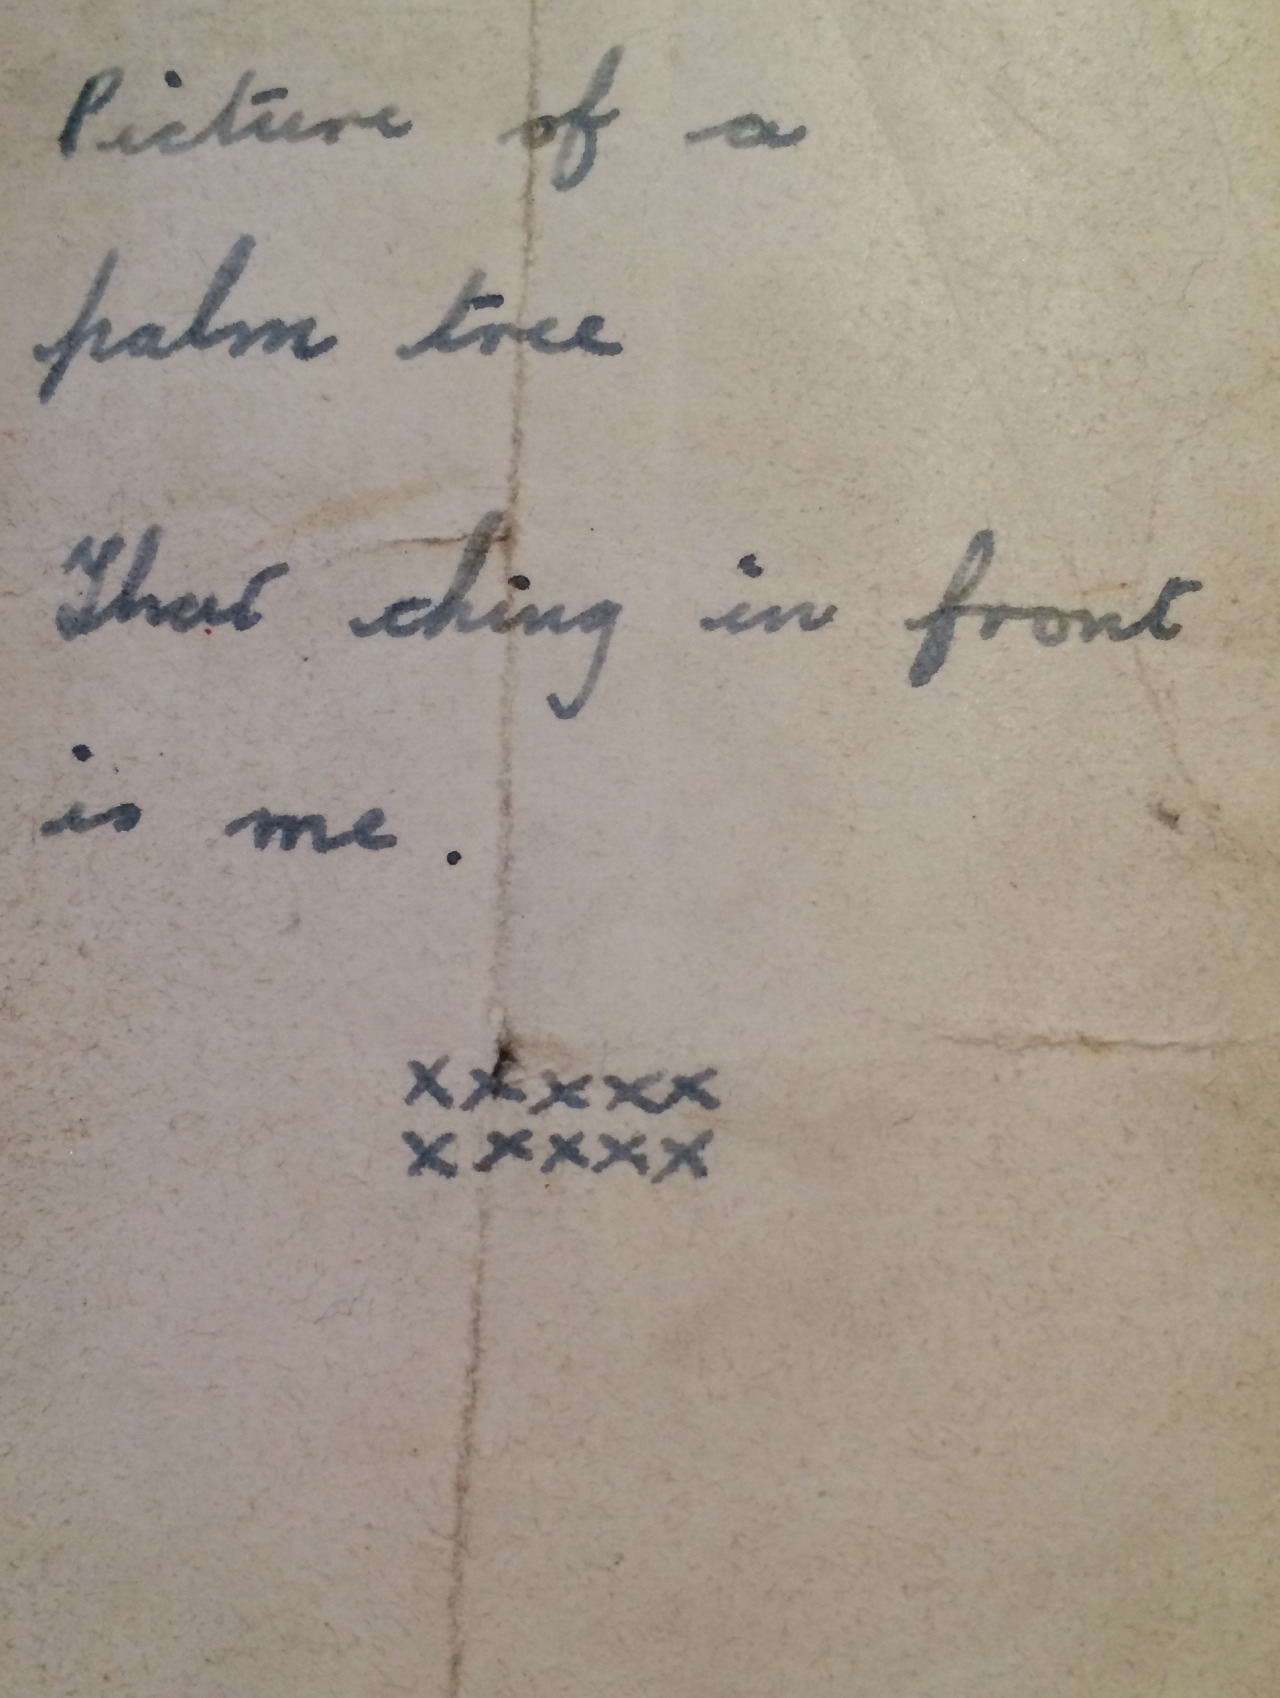 Picture of a
palm tree
That thing in front
is me.
xxxxx
xxxxx